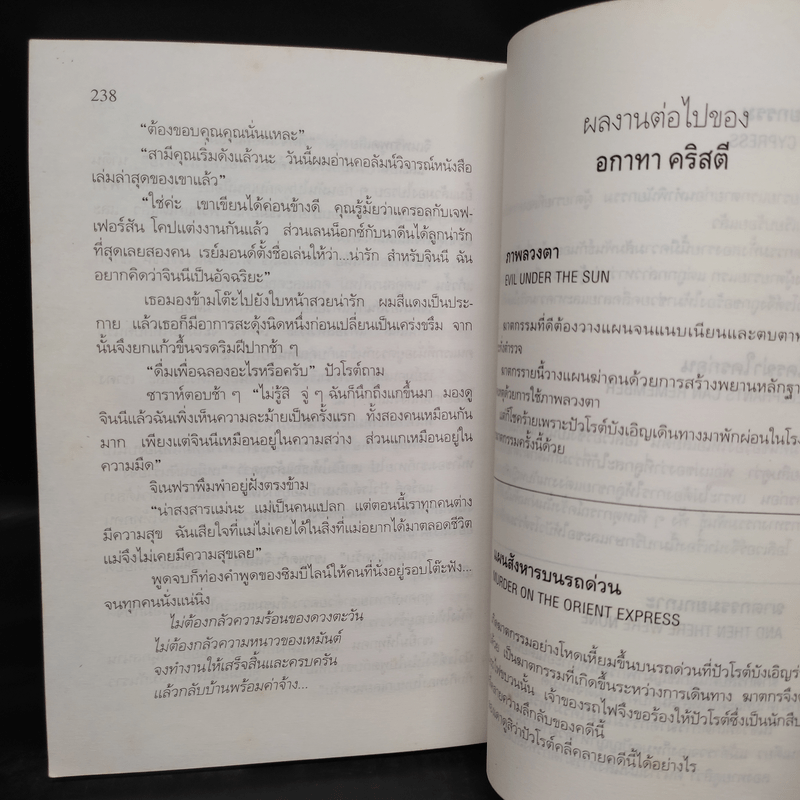 238
“ต้องขอบคุณคุณนั่นแหละ”
“สามีคุณเริ่มดังแล้วนะ วันนี้ผมอ่านคอลัมน์วิจารณ์หนังสือ
เล่มล่าสุดของเขาแล้ว”
“ใช่ค่ะ เขาเขียนได้ค่อนข้างดี คุณรู้มั้ยว่าแครอลกับเจฟ-
เฟอร์สัน โคปแต่งงานกันแล้ว ส่วนเลนน็อกซ์กับนาดีนได้ลูกน่ารัก
ที่สุดเลยสองคน เรย์มอนด์ตั้งชื่อเล่นให้ว่า...น่ารัก สำหรับจินนี ฉัน
อยากคิดว่าจินนีเป็นอัจฉริยะ”
เธอมองข้ามโต๊ะไปยังใบหน้าสวยน่ารัก ผมสีแดงเป็นประ-
กาย แล้วเธอก็มีอาการสะดุ้งนิดหนึ่งก่อนเปลี่ยนเป็นเคร่งขรึม จาก
นั้นจึงยกแก้วขึ้นจรดริมฝีปากช้า ๆ
“ดื่มเพื่อฉลองอะไรหรือครับ” ปัวโรต์ถาม
ซาราห์ตอบช้า ๆ “ไม่รู้สิ จู่ ๆ ฉันก็นึกถึงแกขึ้นมา มองดู
จินนีแล้วฉันเพิ่งเห็นความละม้ายเป็นครั้งแรก ทั้งสองคนเหมือนกัน
มาก เพียงแต่จินนีเหมือนอยู่ในความสว่าง ส่วนแกเหมือนอยู่ใน
ความมืด”
จิเนฟราพึมพำอยู่ฝั่งตรงข้าม
“น่าสงสารแม่นะ แม่เป็นคนแปลก แต่ตอนนี้เราทุกคนต่าง
มีความสุข ฉันเสียใจที่แม่ไม่เคยได้ในสิ่งที่แม่อยากได้มาตลอดชีวิต
แม่จึงไม่เคยมีความสุขเลย”
พูดจบก็ท่องคำพูดของซิมบีไลน์ให้คนที่นั่งอยู่รอบโต๊ะฟัง...
จนทุกคนนั่งแน่นิ่ง
ไม่ต้องกลัวความร้อนของดวงตะวัน
ไม่ต้องกลัวความหนาวของเหมันต์
จงทำงานให้เสร็จสิ้นและครบครัน
แล้วกลับบ้านพร้อมค่าจ้าง...
ผลงานต่อไปของ
อกาทา คริสตี
ภาพลวงตา
EVIL UNDER THE SUN
ฆาตกรรมที่ดีต้องวางแผนจนแนบเนียนและตบตา
ฆาตกรรายนี้วางแผนฆ่าคนด้วยการสร้างพยานหลักฐา
ด้วยการใช้ภาพลวงตา
แต่ก็โชคร้ายเพราะปัวโรต์บังเอิญเดินทางมาพักผ่อนในโรง
ฆาตกรรมครั้งนี้ด้วย
แผนสังหารบนรถด่วน
MURDER ON THE ORIENT EXPRESS
ฆาตกรรมอย่างโหดเหี้ยมขึ้นบนรถด่วนที่ปัวโรต์บังเอิญร่
เป็นฆาตกรรมที่เกิดขึ้นระหว่างการเดินทาง ฆาตกรจึง
ขบวนนั้น เจ้าของรถไฟจึงขอร้องให้ปัวโรต์ซึ่งเป็นนักสืบ
ความลึกลับของคดีนี้
ดูสิว่าปัวโรต์คลี่คลายคดีนี้ได้อย่างไร